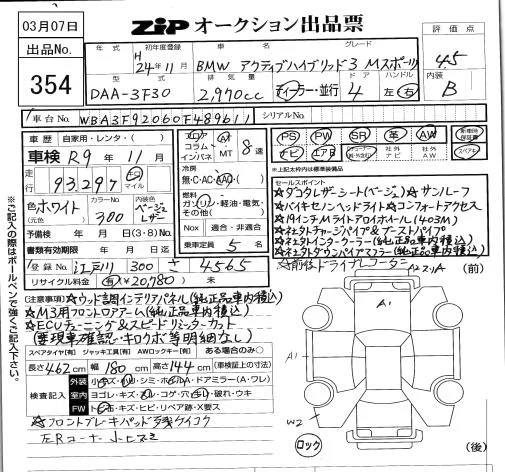 03月07日
出品No.
354
ZiP オークション出品票
評価点
4.5
内装
B
年式 初年度登録 車名 グレード
H 24年11月 BMW アクティブハイブリッド3 Mスポーツ
型式 排気量 ドア ハンドル
DAA-3F30 2,970cc ディーラー・並行 4 左・右
車台No. WBA3F92060F489611 シリアルNo.
車歴 自家用・レンタ
車検 R9年 11月
走行 93,297 km マイル
色 ホワイト (元色) カラーNo. 300 内装色 ベージュレザー
予備検 年 月 日 (3・8)No.
書類有効期限 年 月 日
登録No. 江戸川 300 さ 4565
リサイクル料金 有 ¥20,780 未
フロア コラム インパネ
AT MT 8速
冷房 無・C・AC・AAC
燃料 ガソリン・軽油・電気・その他( )
Nox 適合・非適合
乗車定員 5名
PS PW SR 革 AW 新車時保証書
ナビ エアB 社外ナビ 社外AW スペアキー
※上記太枠内は標準装備品
セールスポイント
☆ダコタレザーシート(ベージュ)☆サンルーフ
☆バイキセノンヘッドライト☆コンフォートアクセス
☆19インチMライトアロイホイール(403M)
☆ネェタドチャージパイプ&ブーストパイプ
☆ネェタドインタークーラー(純正品車内積込)
☆ネェタドダウンパイプマフラー(純正品車内積込)
☆前後ドライブレコーダー
注意事項 ☆ウッド調インテリアパネル(純正品車内積込)
☆M3用フロントロアアーム(純正品車内積込)
☆ECUチューニング&スピードリミッターカット
(要現車確認・キロクボ等明細なし)
スペアタイヤ[有] ジャッキ工具[有] AWロックキー[有] ある場合のみ○
長さ462cm 幅180cm 高さ144cm (車検証上の寸法)
検査記入
外装 小キズ・凹・シミ・ホイルA・ドアミラー(A・ワレ)
室内 ヨゴレ・キズ・スレ・コゲ・穴・シミ・破れ・ウキ
FW トビ・キズ・ヒビ・リペア跡・X要ス
☆フロントブレーキパッド残ケイコク
左Rコーナー小ヒズミ
※ご記入の際はボールペンで強くご記入下さい。
(前)
A1
A1
W2
ロック
(後)